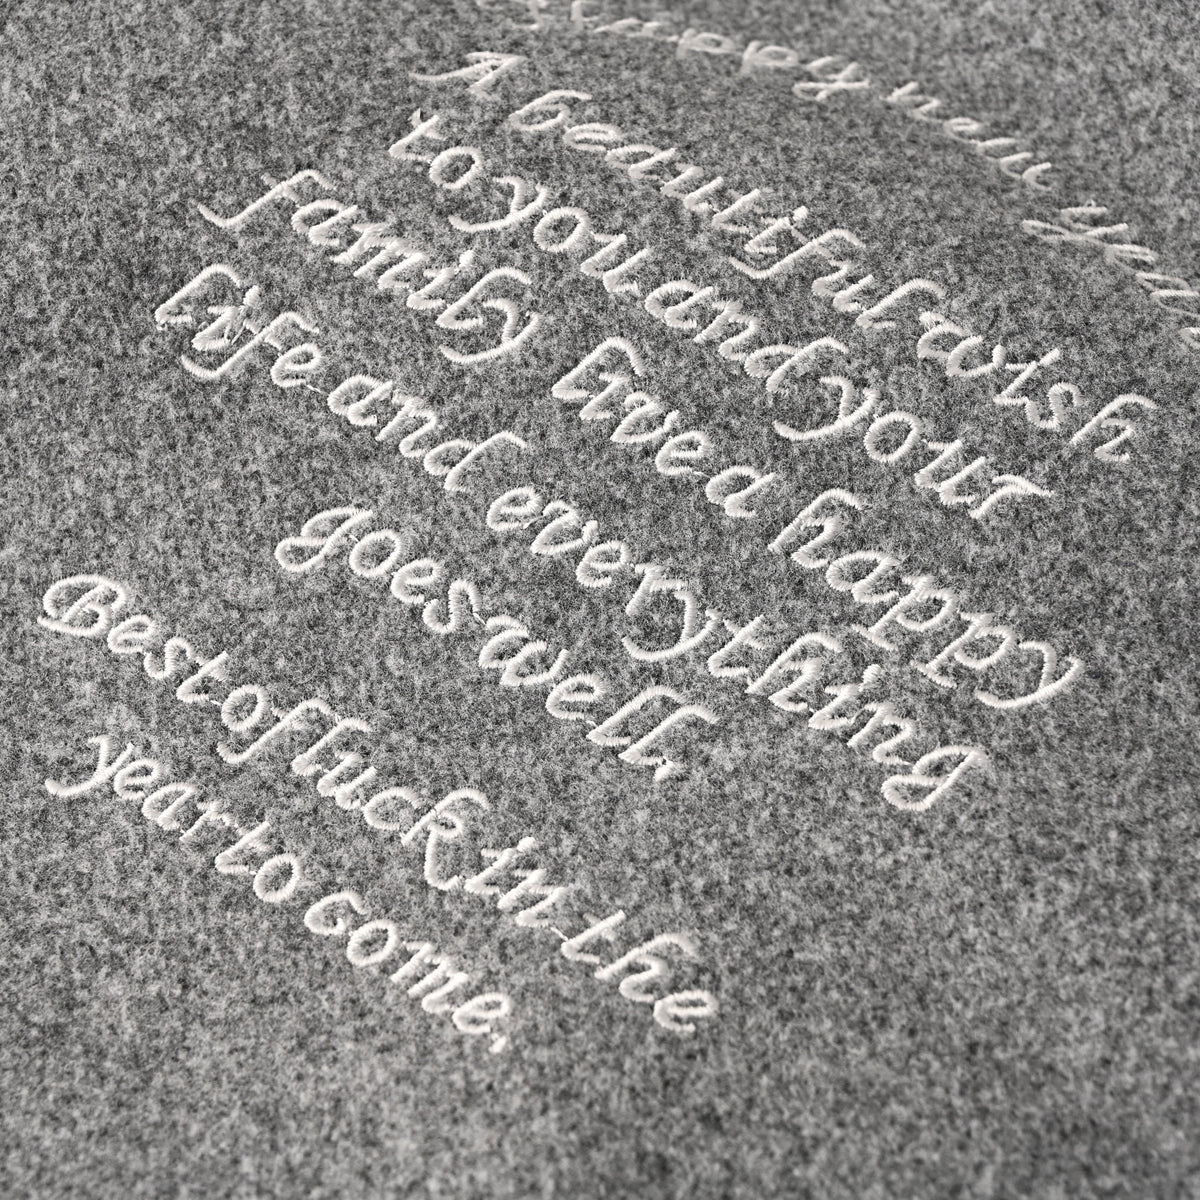 Happy new year
A beautiful wish
to you and your
family Live a happy
Life and everything
goes well.
Best of luck in the
year to come.